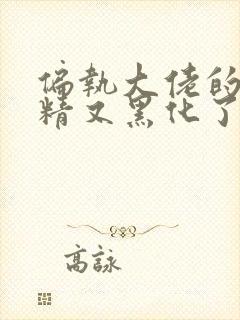 偏執大佬的
精又黑化了
高詠